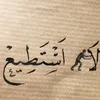 لا أَسْتَطِيعْ